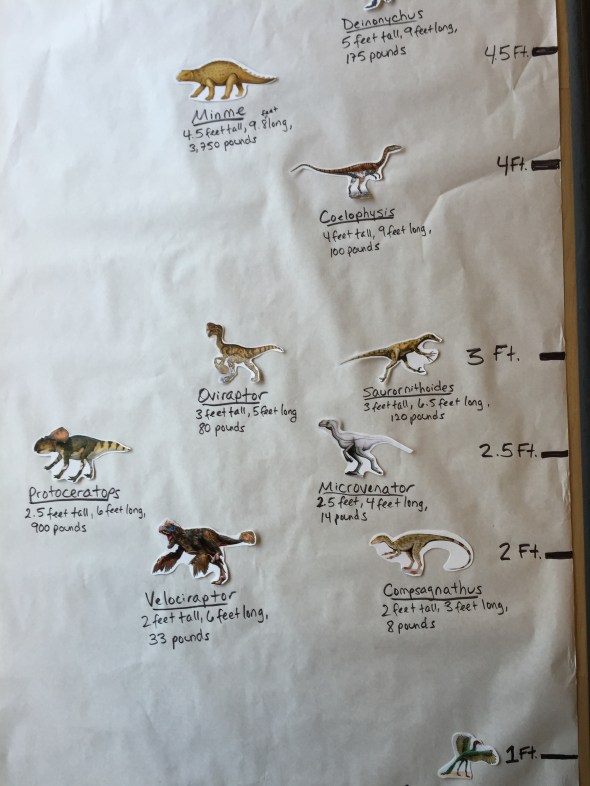 Deinonychus
5 feet tall, 9 feet long,
175 pounds
4.5 Ft.
Minme
4.5 feet tall, 9.8 feet long,
3,750 pounds
4 Ft.
Coelophysis
4 feet tall, 9 feet long,
100 pounds
3 Ft.
Oviraptor
3 feet tall, 5 feet long
80 pounds
Saurornithoides
3 feet tall, 6.5 feet long,
120 pounds
2.5 Ft.
Protoceratops
2.5 feet tall, 6 feet long,
900 pounds
Microvenator
2.5 feet, 4 feet long,
14 pounds
2 Ft.
Velociraptor
2 feet tall, 6 feet long,
33 pounds
Compsagnathus
2 feet tall, 3 feet long,
8 pounds
1 Ft.